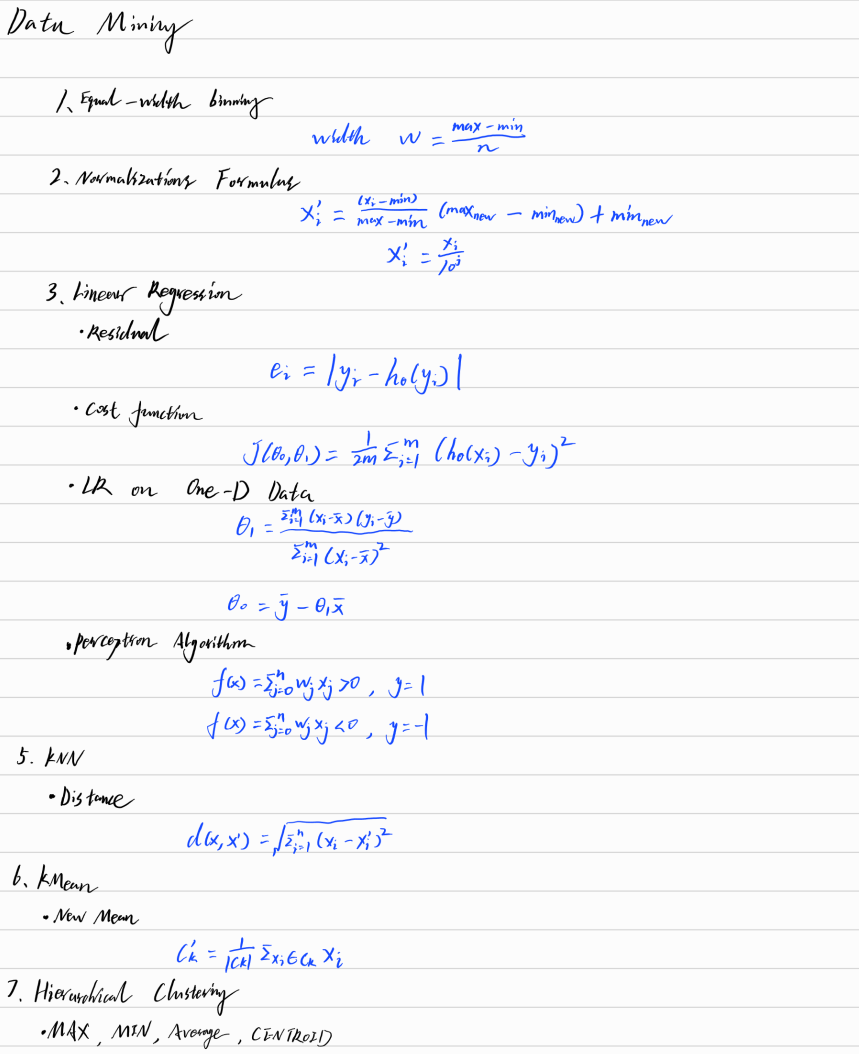 Data Mining
1、Equal-width binning
width w = (max - min)/n
2、Normalizations Formulas
xᵢ' = (xᵢ - min)/(max - min) (max_new - min_new) + min_new
xᵢ' = xᵢ/10ʲ
3、Linear Regression
• Residual
eᵢ = |yᵢ - h₀(yᵢ)|
• Cost function
J(θ₀,θ₁) = 1/2m Σᵢ₌₁ᵐ (h₀(xᵢ) - yᵢ)²
• LR on One-D Data
θ₁ = Σᵢ₌₁ᵐ (xᵢ - x̄)(yᵢ - ȳ) / Σᵢ₌₁ᵐ (xᵢ - x̄)²
θ₀ = ȳ - θ₁x̄
• Perceptron Algorithm
f(x) = Σⱼ₌₀ⁿ wⱼxⱼ > 0, y = 1
f(x) = Σⱼ₌₀ⁿ wⱼxⱼ < 0, y = -1
5. kNN
• Distance
d(x,x') = √(Σᵢ₌₁ⁿ (xᵢ - xᵢ')²)
6. kMean
• New Mean
Cₖ' = 1/|Ck| Σxᵢ∈Cₖ xᵢ
7. Hierarchical Clustering
• MAX, MIN, Average, CENTROID